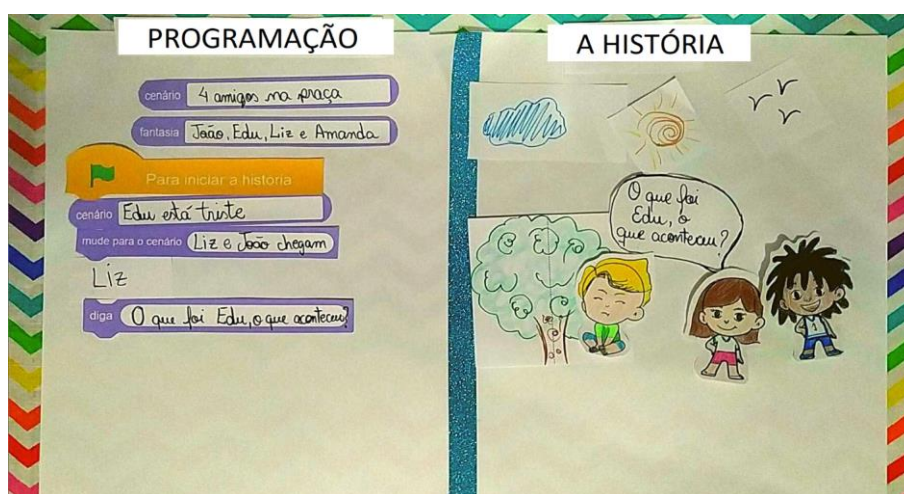 PROGRAMAÇÃO
cenário 4 amigos na praça
fantasia João, Edu, Liz e Amanda
Para iniciar a história
cenário Edu está triste
mude para o cenário Liz e João chegam
Liz
diga O que foi Edu, o que aconteceu?
A HISTÓRIA
O que foi
Edu, o
que aconteceu?